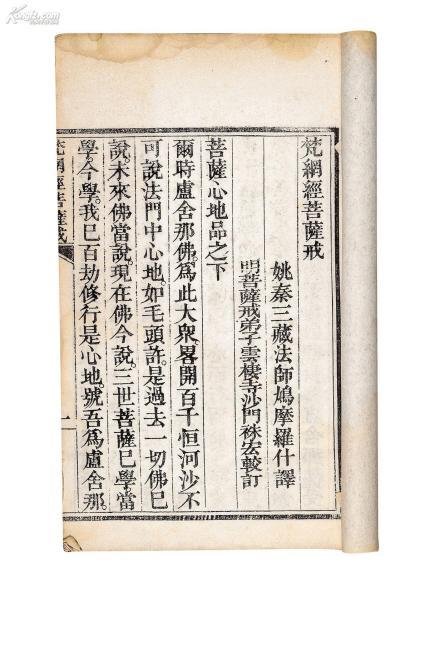 孔夫子旧书网
Kongfz.com
梵網經菩薩戒
姚秦三藏法師鳩摩羅什譯
明菩薩戒弟子雲棲寺沙門袾宏較訂
菩薩心地品之下
爾時盧舍那佛爲此大衆畧開百千恒河沙不
可說法門中心地如毛頭許是過去一切佛已
說未來佛當說現在佛今說三世菩薩已學當
學今學我已百劫修行是心地號吾爲盧舍那
梵網經菩薩戒
一